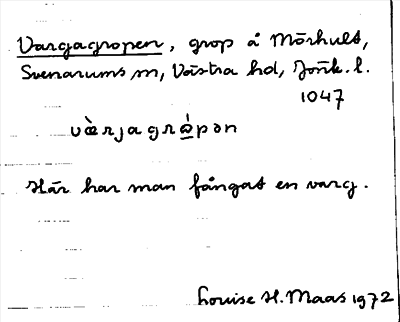 Vargagropen, grop å Mörhult,
Svenarums sn, Västra hd, Jönk. l.
1047
vὰrjagrὰ̱pən
Här har man fångat en varg.
Louise H. Maas 1972